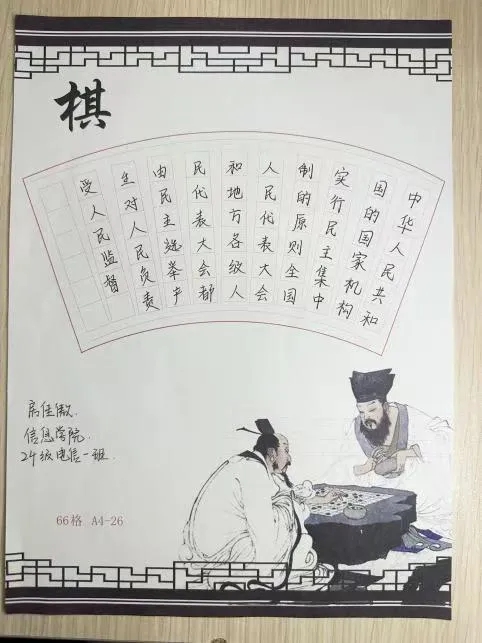 棋
中华人民共和
国的国家机构
实行民主集中
制的原则全国
人民代表大会
和地方各级人
民代表大会都
由民主选举产
生对人民负责
受人民监督
信息学院.
24级电信一班.
66格 A4-26